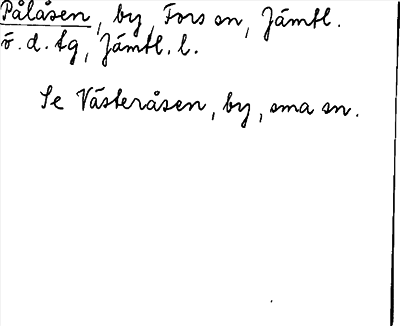 Pålåsen, by, Fors sn, Jämtl.
ö. d. tg, Jämtl. l.
Se Västeråsen, by, sma sn.